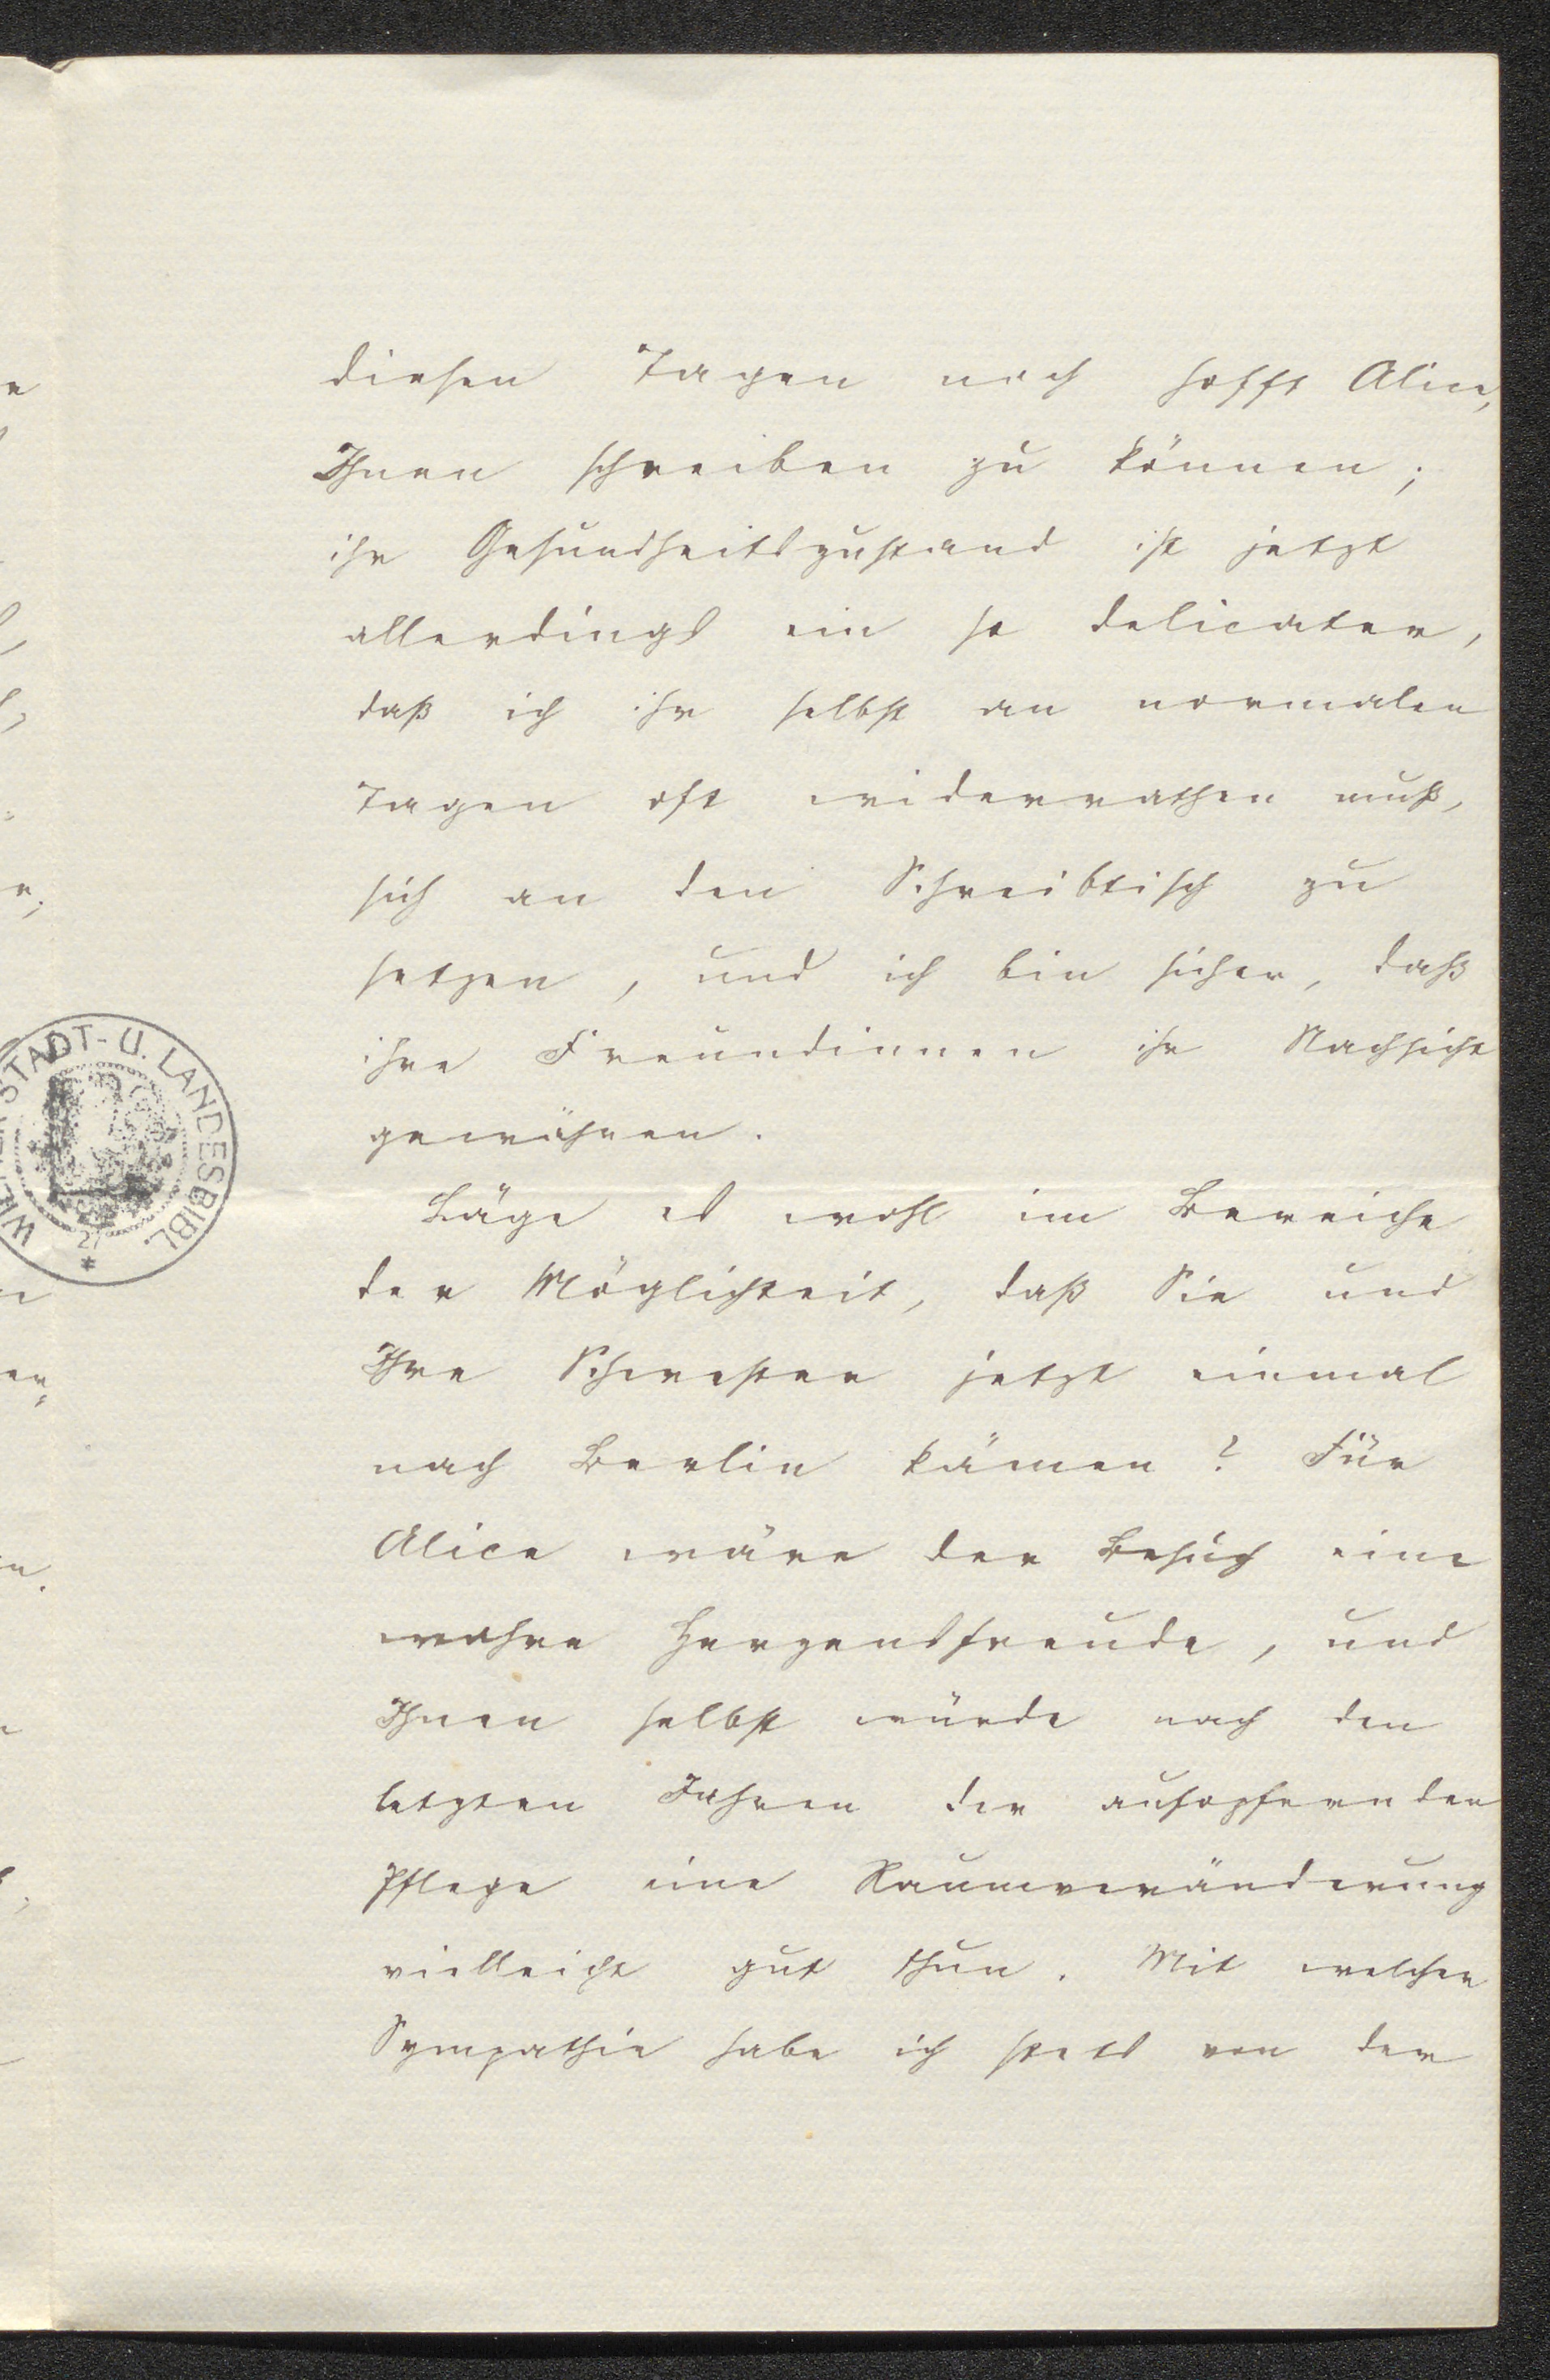 diesen Tagen noch hofft Alice,
Ihnen schreiben zu können;
ihr Gesundheitszustand ist jetzt
allerdings ein so delicater,
daß ich ihr selbst an normalen
Tagen oft widerrathen muß,
sich an den Schreibtisch zu
setzen, und ich bin sicher, daß
ihre Freundinnen ihr Nachsicht
gewähren.
Läge es wohl im Bereiche
der Möglichkeit, daß Sie und
Ihre Schwester jetzt einmal
nach Berlin kämen? Für
Alice wäre der Besuch eine
wahre Herzensfreude, und
Ihnen selbst würde nach den
letzten Jahren der aufopfernden
Pflege eine Raumveränderung
vielleicht gut thun. Mit welcher
Sympathie habe ich stets von der
STADT- U. LANDESBIBL.